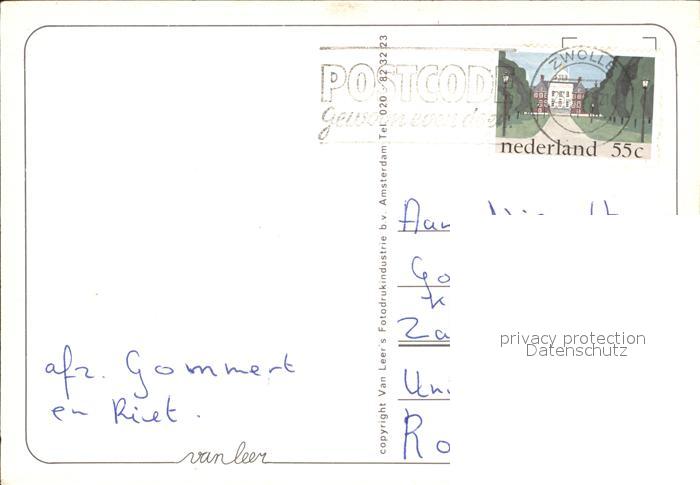 ZWOLLE
POSTCODE
gewoon even doen
nederland 55c
copyright Van Leer's Fotodrukindustrie b.v. Amsterdam Tel. 020 - 82 32 23
Aan
Go
k
Za
privacy protection
Datenschutz
Uni
Ro
afz. Gommert
en Riet.
van leer